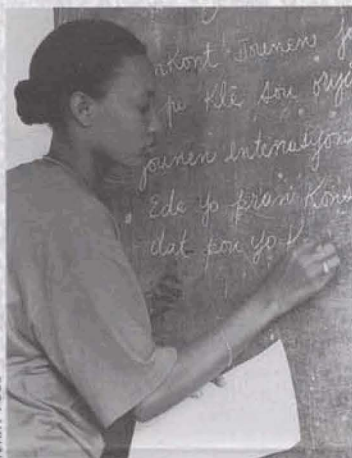 nkont Jounen
pe klè sou
jounen entènasyon
Ede yo pran kons
dat pou yo